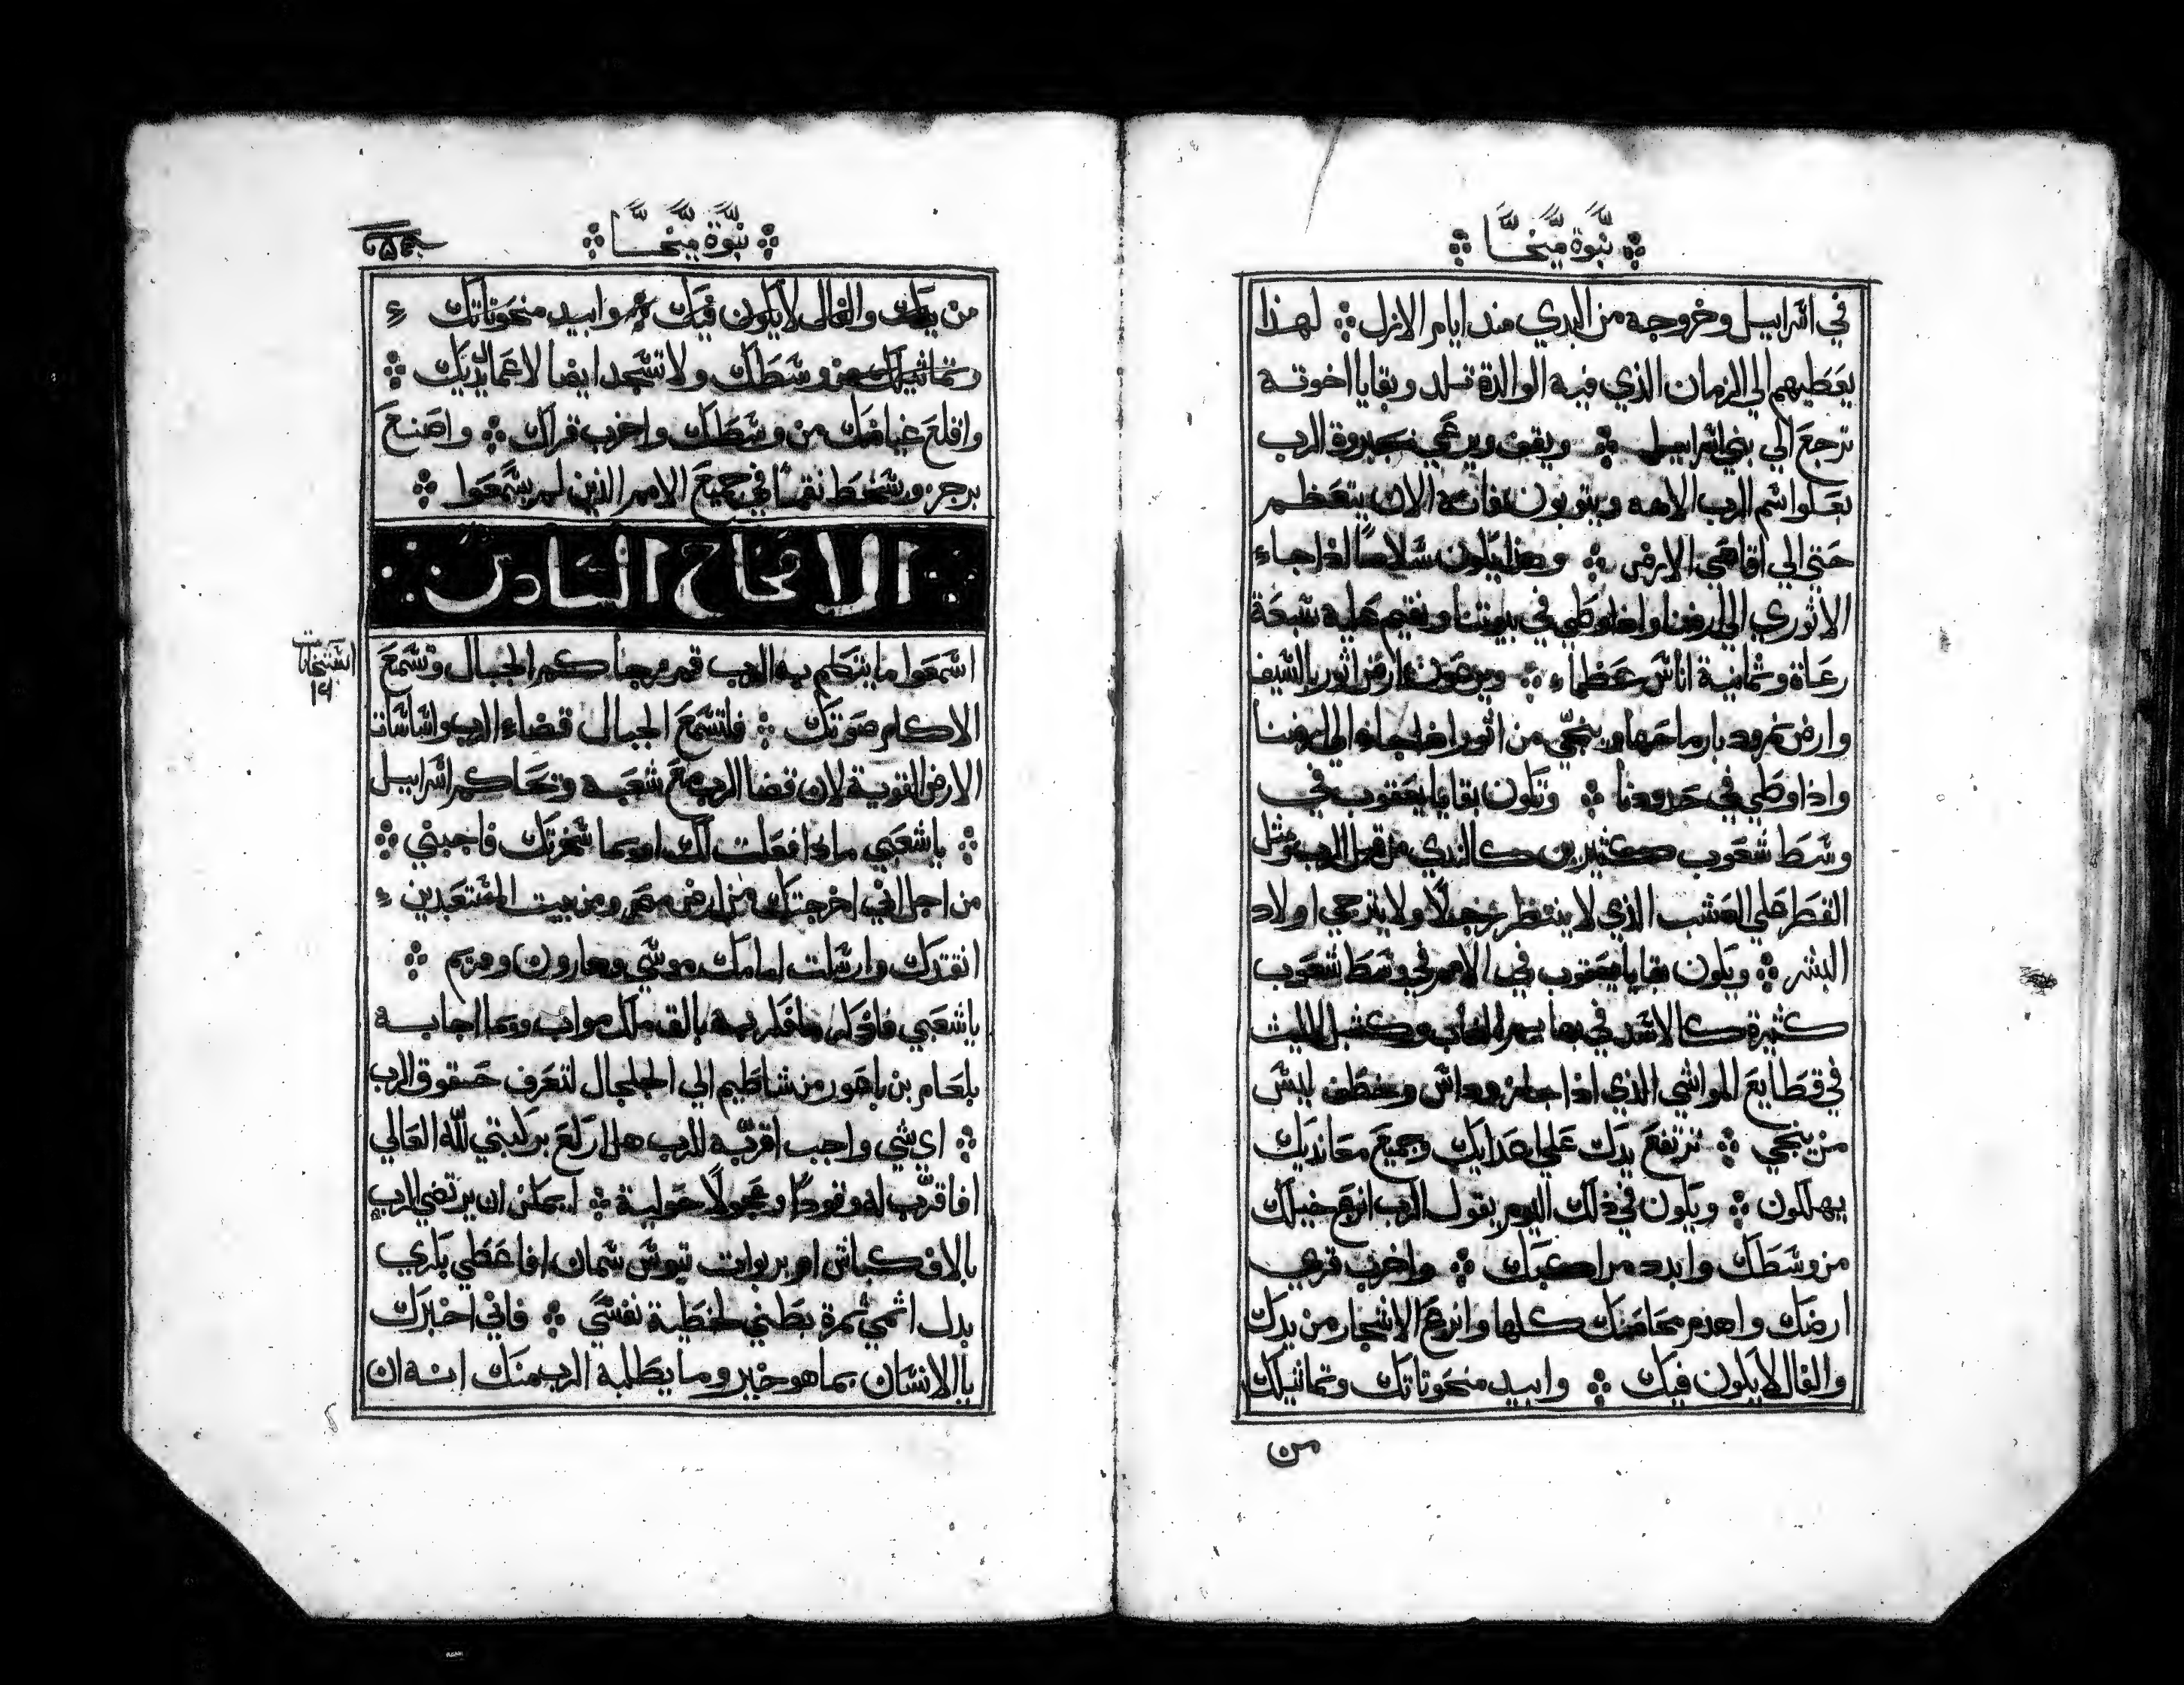 نبوة ميخا
في اسراييل وخروجه من البدي مند ايام الازل ۞ لهذا
يعطيهم الي الزمان الذي فيه الوالدة تلد وبقايا اخوته
ترجع الي بني اسراييل ۞ ويقف ويرعي بجبروة الرب
بعلو اسم الرب الاهه ويتوبون فانه الان يتعظم
حتي الي اقاصي الارض ۞ وهذا يكون سلاما اذا جاء
الاثوري الي ارضنا واذا وطي في بيوتنا ونقيم عليه سبعة
رعاة وثمانية اناس عظماء ۞ ويرعون ارض اثور بالسيف
وارض نمرود بارماحها وينجي من اثور اذا جاء الي ارضنا
واذا وطي في حدودنا ۞ وتكون بقايا يعقوب في
وسط شعوب كثيرين كالندي من قبل الرب ومثل
القطر علي العشب الذي لا ينتظر رجلا ولا يترجي اولاد
البشر ۞ ويكون بقايا يعقوب في الامم في وسط شعوب
كثيرة كالاسد في بهايم الغاب وكشبل الليث
في قطايع المواشي الذي اذا جاز وداس وخطف ليس
من ينجي ۞ ترتفع يدك علي اعدايك وجميع معانديك
يهلكون ۞ ويكون في ذلك اليوم يقول الرب انزع خيلك
من وسطك وابدد مراكبك ۞ واخرب قري
ارضك واهدم محاصنك كلها وانزع الاشجار من يدك
والفال لا يكون فيك ۞ وابيد منحوتاتك وتماثيلك
من
نبوة ميخا
من يدك والفال لا يكون فيك ۞ وابيد منحوتاتك
وتماثيلك من وسطك ولا تسجد ايضا لاعمال يديك ۞
واقلع غياضك من وسطك واخرب قراك ۞ واصنع
برجز وسخط نقما في جميع الامم الذين لم يسمعوا ۞
الافتحاح السادس
اسمعوا ما يتكلم به الرب قم فرجا كم الجبال وتسمع
الاكام صوتك ۞ فلتسمع الجبال قضاء الرب واساسات
الارض القوية لان قضا الرب مع شعبه وتحاكم اسراييل
۞ يا شعبي ماذا فعلت لك او بما سخرتك فاجبني ۞
من اجل اني اخرجتك من ارض مصر ومن بيت المستعبدين
انقذتك وارسلت امامك موسي وهارون ومريم ۞
يا شعبي فاذكر ما فكر به بالاق ملك مواب وبما اجابه
بلعام بن باعور من شاطيم الي الجلجال لتعرف حقوق الرب
۞ اي شي واجب اقربه للرب هل اركع بركبتي لله العالي
افاقرب له وقودا وعجولا حولية ۞ ايمكن ان يرتضي الرب
بالاف كباش او بربوات تيوس سمان افاعطي بكري
بدل اثمي ثمرة بطني لخطية نفسي ۞ فاني اخبرك
يا الانسان بما هو خير وما يطلبه الرب منك انه ان